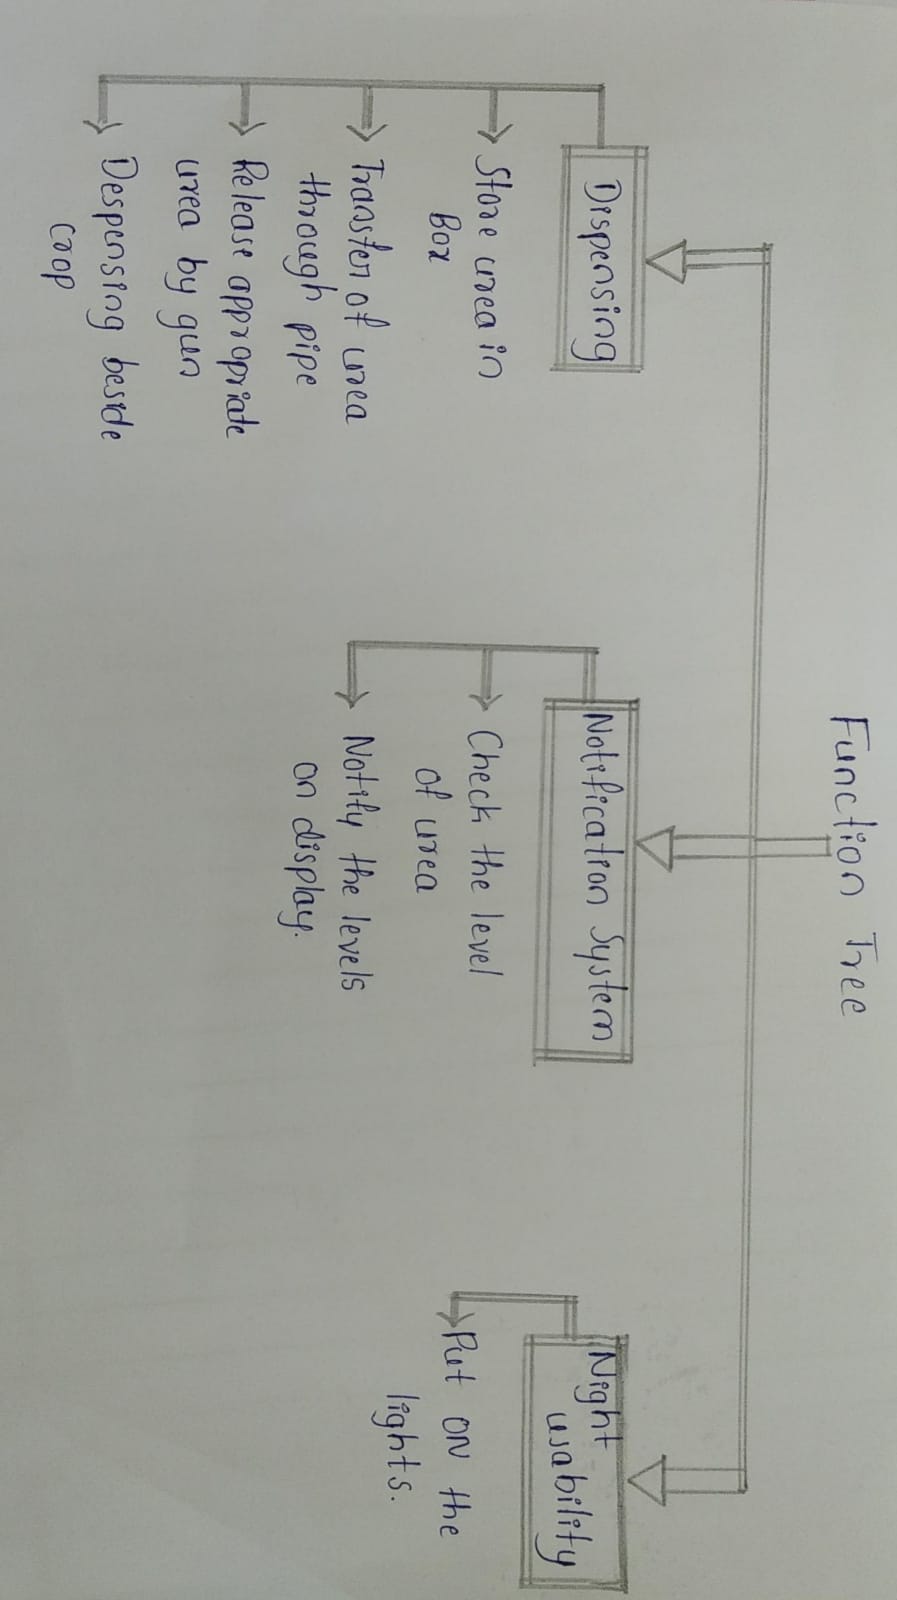 Function Tree
Dispensing
Store urea in
Box
Transfer of urea
through pipe
Release appropriate
urea by gun
Despensing beside
crop
Notification System
Check the level
of urea
Notify the levels
on display.
Night
usability
Put ON the
lights.